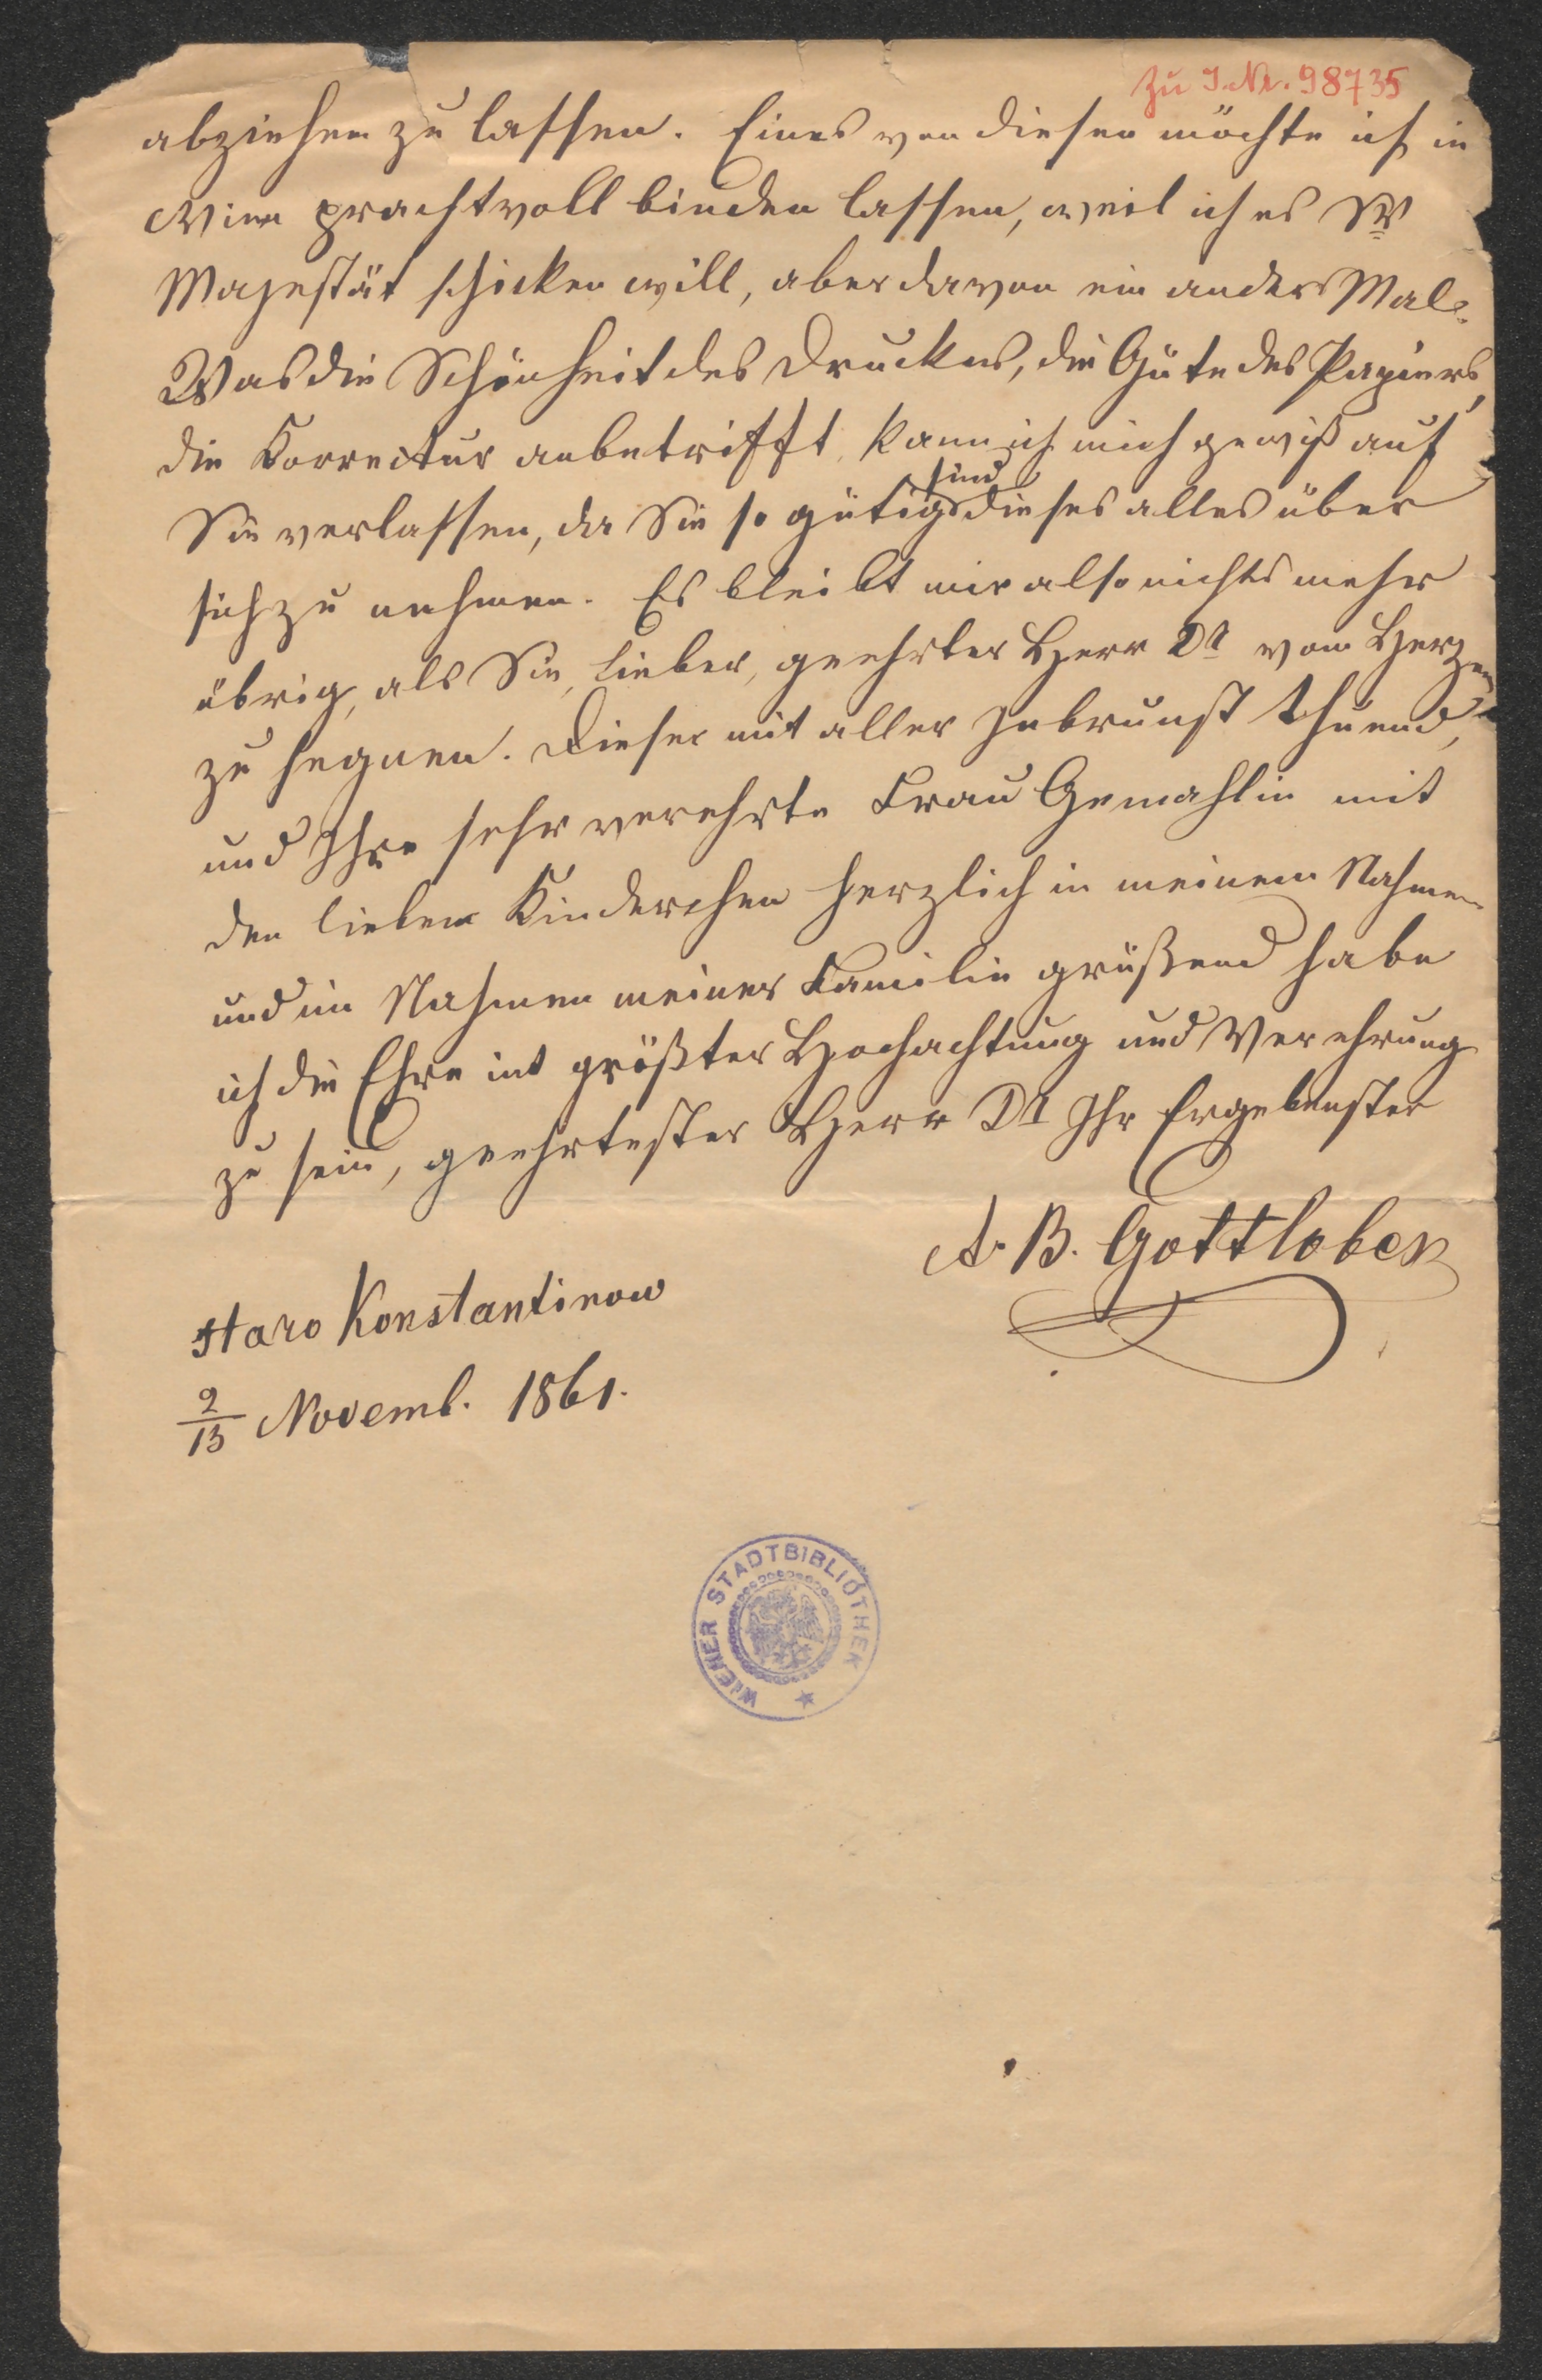 Zu I.Nr. 98735
abziehen zu lassen. Eines von diesen möchte ich in
Wien prachtvoll binden lassen, weil ich es Sr
Majestät schicken will, aber davon ein anders Mal.
Was die Schönheit des Druckes, die Güte des Papiers,
die Korrectur anbetrifft, kann ich mich gewiß auf
Sie verlassen, da Sie so gütig sind dieses alles über
sich zu nehmen. Es bleibt mir also nichts mehr
übrig, als Sie, lieber, geehrter Herr Dr vom Herzen
zu segnen. Dieses mit aller Inbrunst thuend,
und Ihre sehr verehrte Frau Gemahlin mit
den lieben Kinderchen herzlich in meinem Nahmen
und im Nahmen meiner Familie grüßend habe
ich die Ehre mit größter Hochachtung und Verehrung
zu sein, geehrtester Herr Dr Ihr Ergebenster
A. B. Gottlober
Staro Konstantinow
2/13 Novemb. 1861.
WIENER STADTBIBLIOTHEK